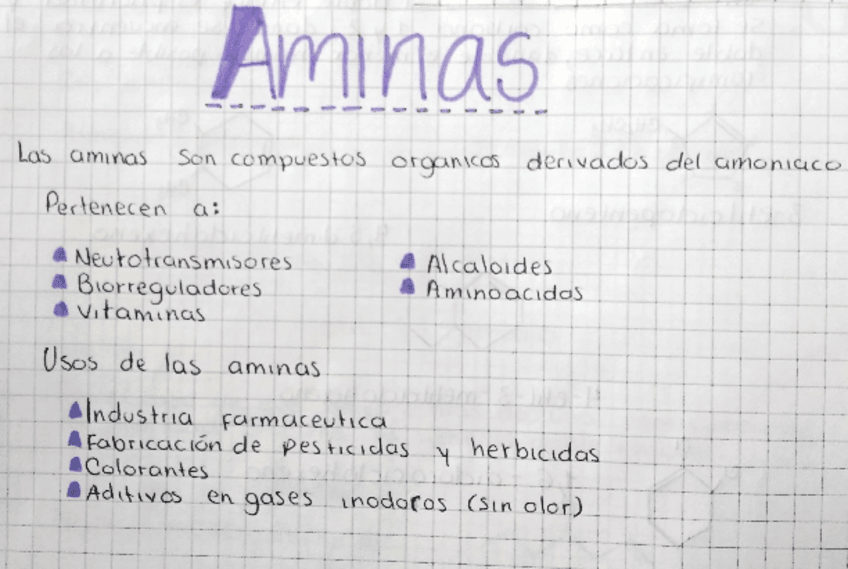 Aminas
Las aminas son compuestos organicos derivados del amoniaco
Pertenecen a:
Neurotransmisores
Biorreguladores
Vitaminas
Alcaloides
Aminoacidos
Usos de las aminas
Industria farmaceutica
Fabricación de pesticidas y herbicidas
Colorantes
Aditivos en gases inodoros (sin olor)